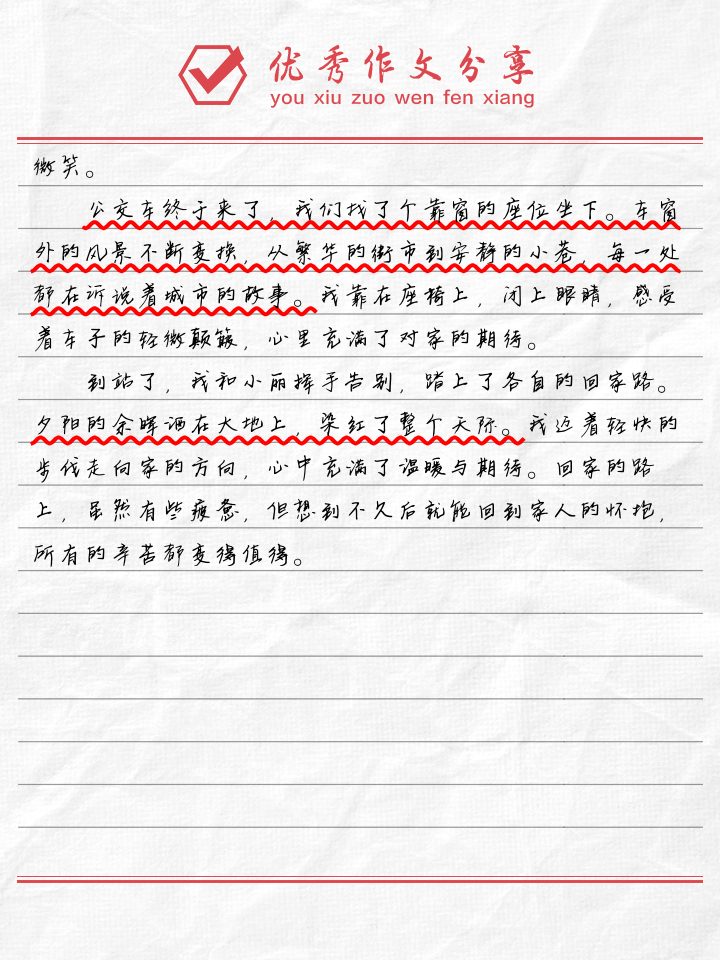 优秀作文分享
you xiu zuo wen fen xiang
微笑。
公交车终于来了，我们找了个靠窗的座位坐下。车窗
外的风景不断变换，从繁华的街市到安静的小巷，每一处
都在诉说着城市的故事。我靠在座椅上，闭上眼睛，感受
着车子的轻微颠簸，心里充满了对家的期待。
到站了，我和小丽挥手告别，踏上了各自的回家路。
夕阳的余晖洒在大地上，染红了整个天际。我迈着轻快的
步伐走向家的方向，心中充满了温暖与期待。回家的路
上，虽然有些疲惫，但想到不久后就能回到家人的怀抱，
所有的辛苦都变得值得。